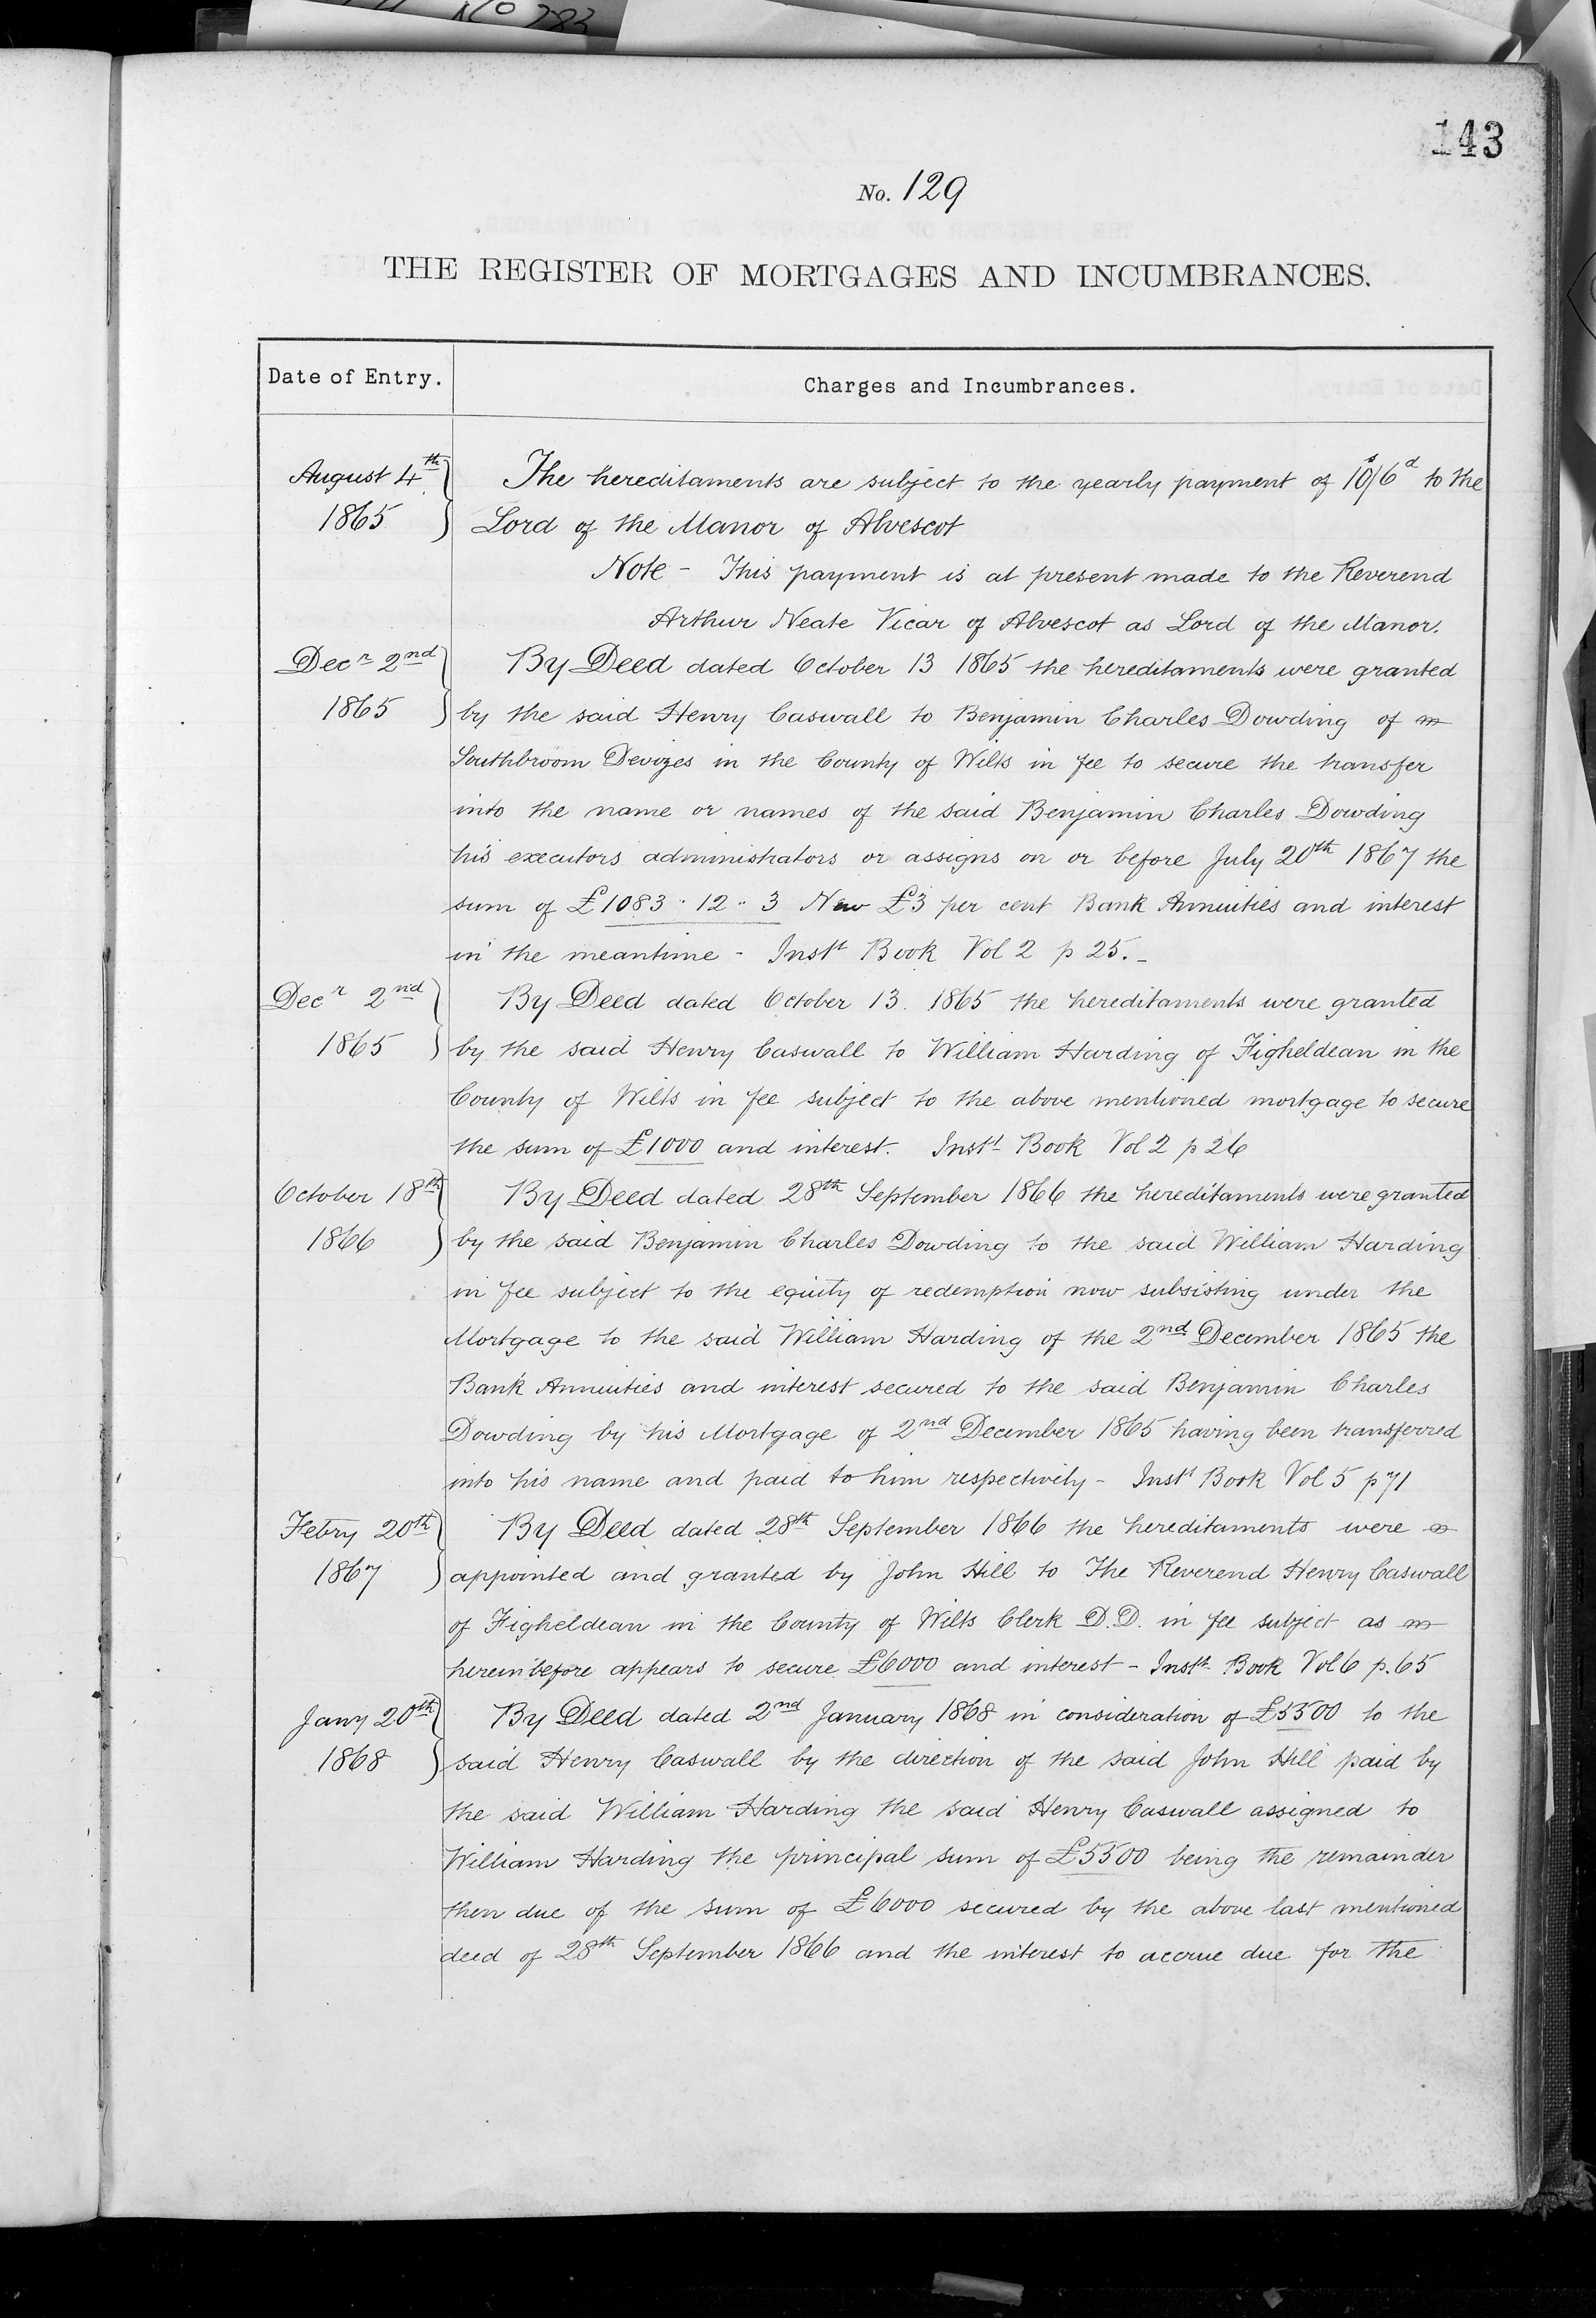 No 283
143
No. 129
THE REGISTER OF MORTGAGES AND INCUMBRANCES.
Date of Entry.
Charges and Incumbrances.
August 4th 1865
The hereditaments are subject to the yearly payment of 10s/6d to the
Lord of the Manor of Alvescot
Note - This payment is at present made to the Reverend
Arthur Neate Vicar of Alvescot as Lord of the Manor.
Decr 2nd 1865
By Deed dated October 13 1865 the hereditaments were granted
by the said Henry Caswall to Benjamin Charles Dowding of
Southbroom Devizes in the County of Wilts in fee to secure the transfer
into the name or names of the said Benjamin Charles Dowding
his executors administrators or assigns on or before July 20th 1867 the
sum of £1083 " 12 " 3 New £3 per cent Bank Annuities and interest
in the meantime - Instt Book Vol 2 p 25. -
Decr 2nd 1865
By Deed dated October 13. 1865 the hereditaments were granted
by the said Henry Caswall to William Harding of Figheldean in the
County of Wilts in fee subject to the above mentioned mortgage to secure
the sum of £1000 and interest. Instt Book Vol 2 p 26
October 18th 1866
By Deed dated 28th September 1866 the hereditaments were granted
by the said Benjamin Charles Dowding to the said William Harding
in fee subject to the equity of redemption now subsisting under the
Mortgage to the said William Harding of the 2nd December 1865 the
Bank Annuities and interest secured to the said Benjamin Charles
Dowding by his Mortgage of 2nd December 1865 having been transferred
into his name and paid to him respectively - Instt Book Vol 5 p 71
Febry 20th 1867
By Deed dated 28th September 1866 the hereditaments were
appointed and granted by John Hill to The Reverend Henry Caswall
of Figheldean in the County of Wilts Clerk D.D. in fee subject as
hereinbefore appears to secure £6000 and interest - Instt Book Vol 6 p. 65
Jany 20th 1868
By Deed dated 2nd January 1868 in consideration of £5500 to the
said Henry Caswall by the direction of the said John Hill paid by
the said William Harding the said Henry Caswall assigned to
William Harding the principal sum of £5500 being the remainder
then due of the sum of £6000 secured by the above last mentioned
deed of 28th September 1866 and the interest to accrue due for the